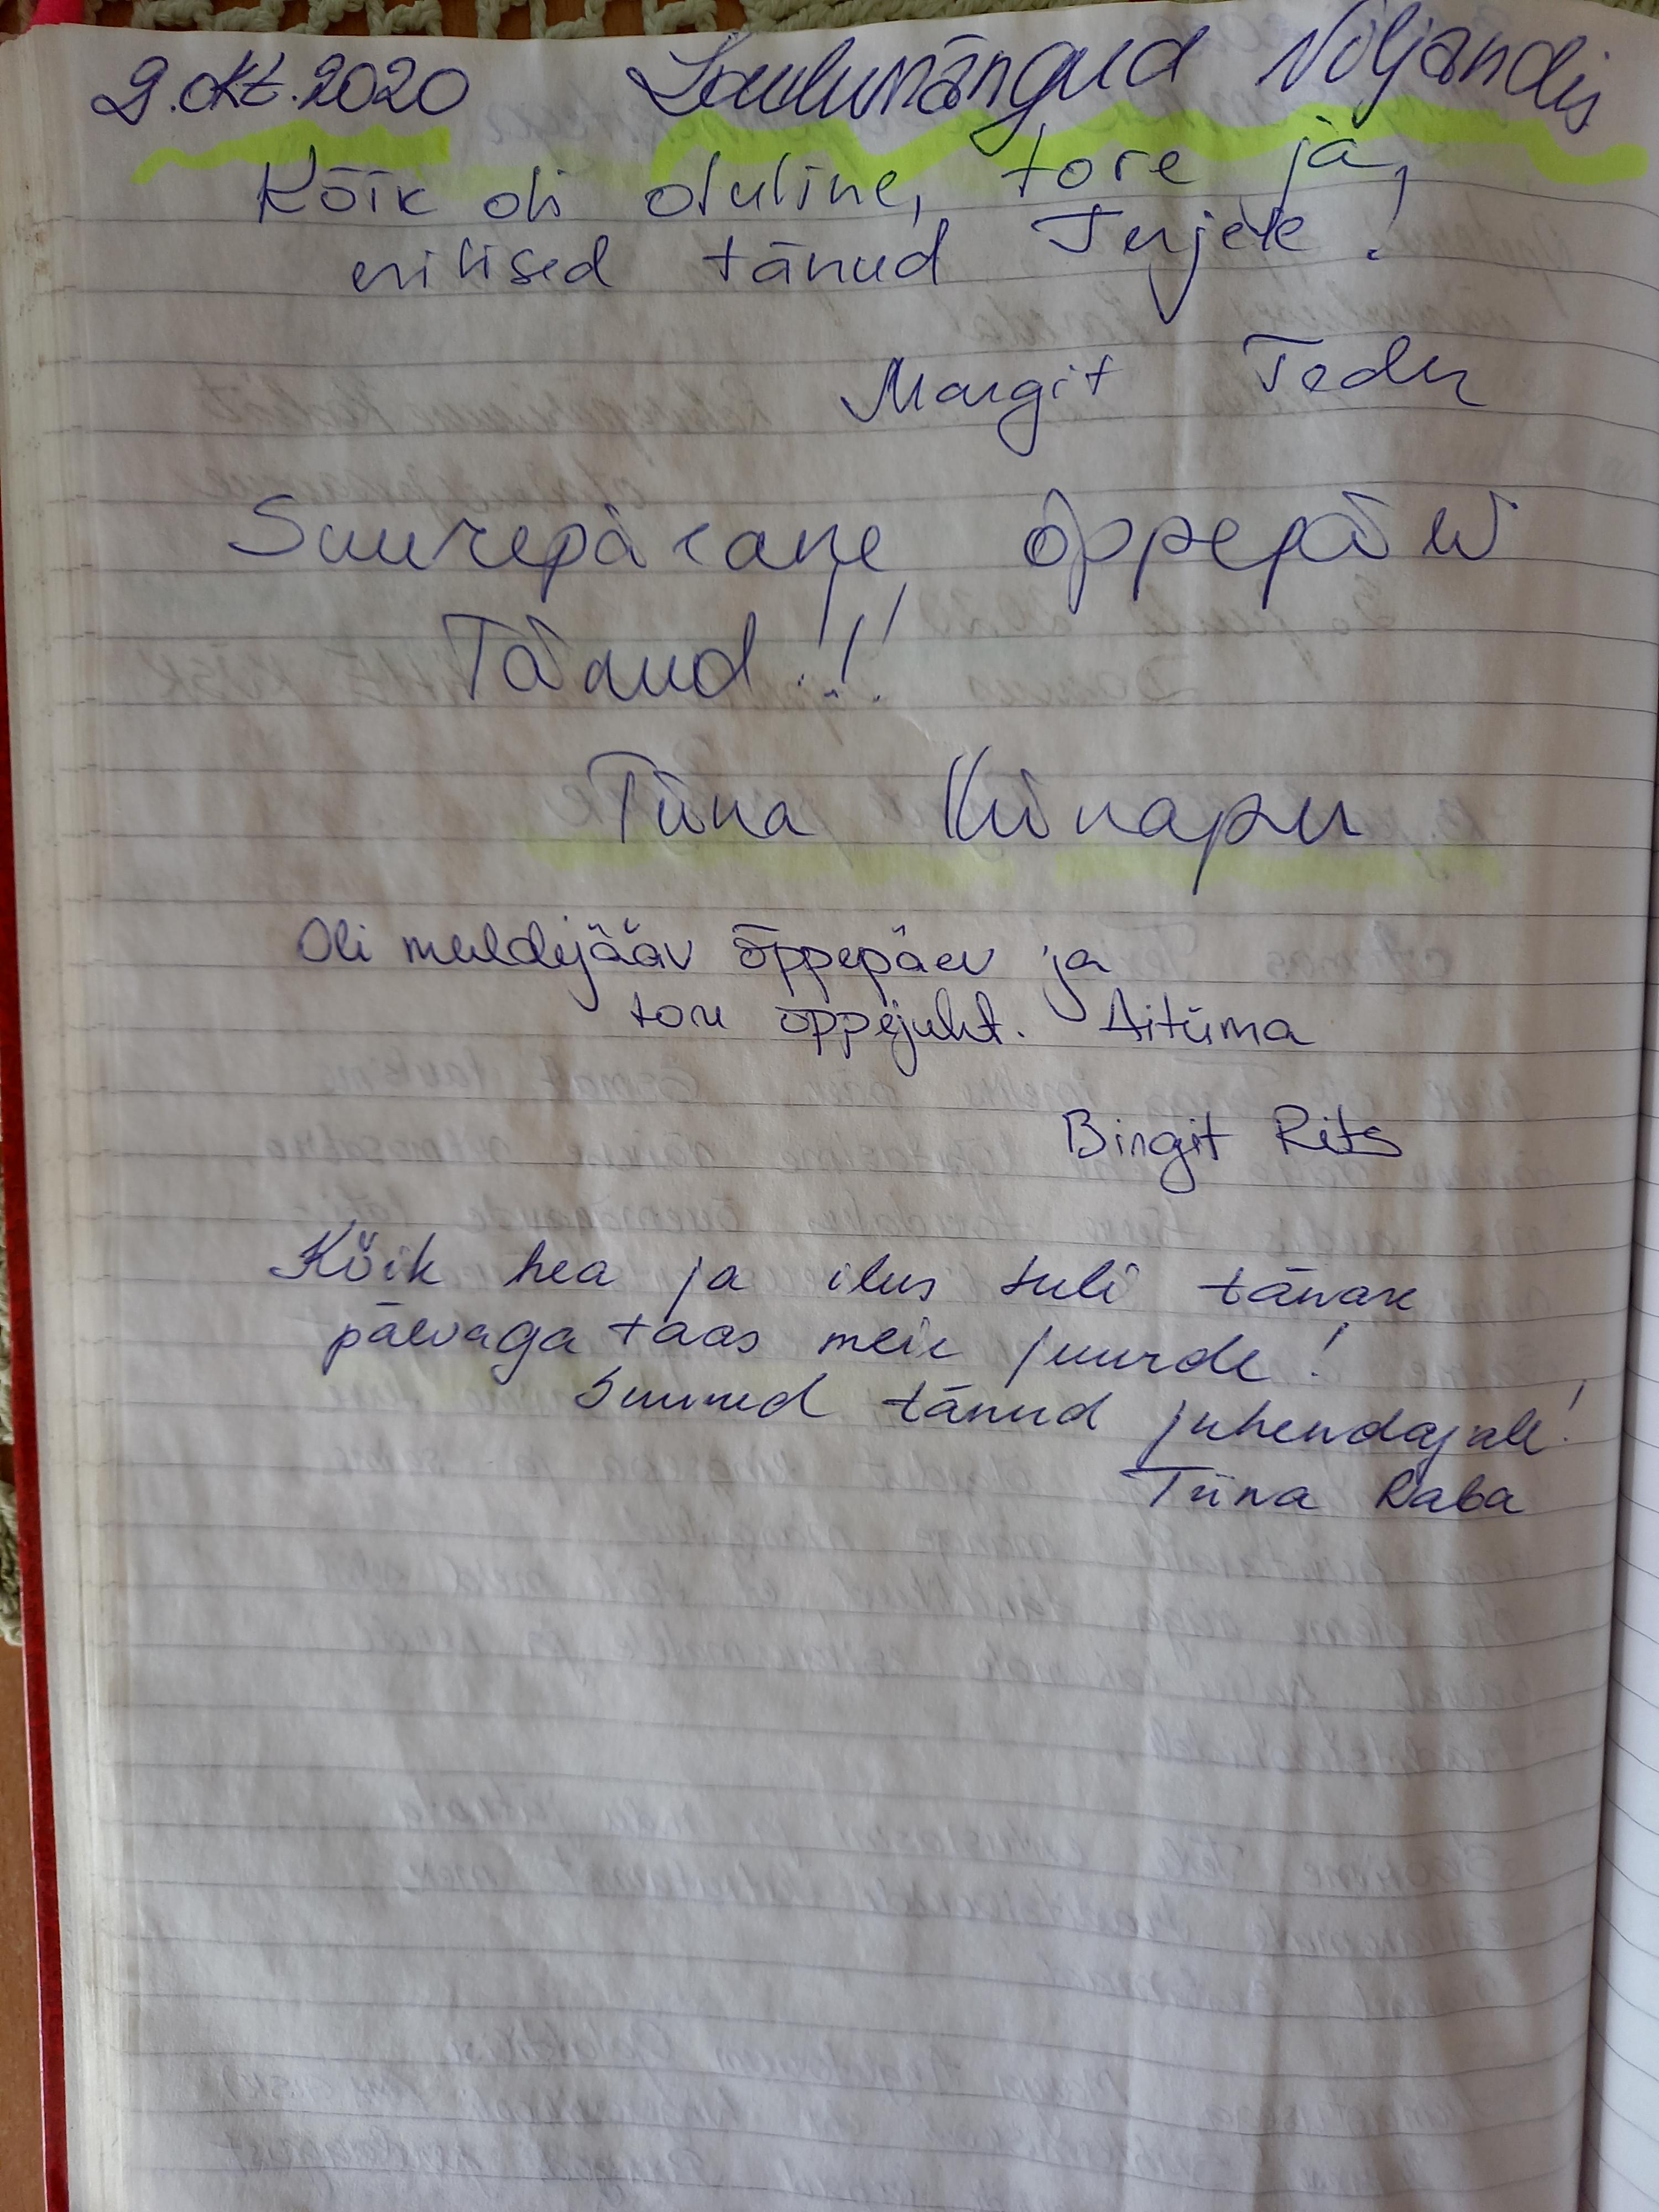 9. okt. 2020 Laulumängud Viljandis
Kõik oli oluline, tore ja,
erilised tänud Terjele!
Margit Teder
Suurepärane õppepäev
Tänud!!!
Tiina Kiinapuu
Oli meeldejääv õppepäev ja
tore õppejuht. Aitüma
Birgit Rits
Kõik hea ja ilus tuli tänase
päevaga taas meie juurde!
Suured tänud juhendajale!
Tiina Raba